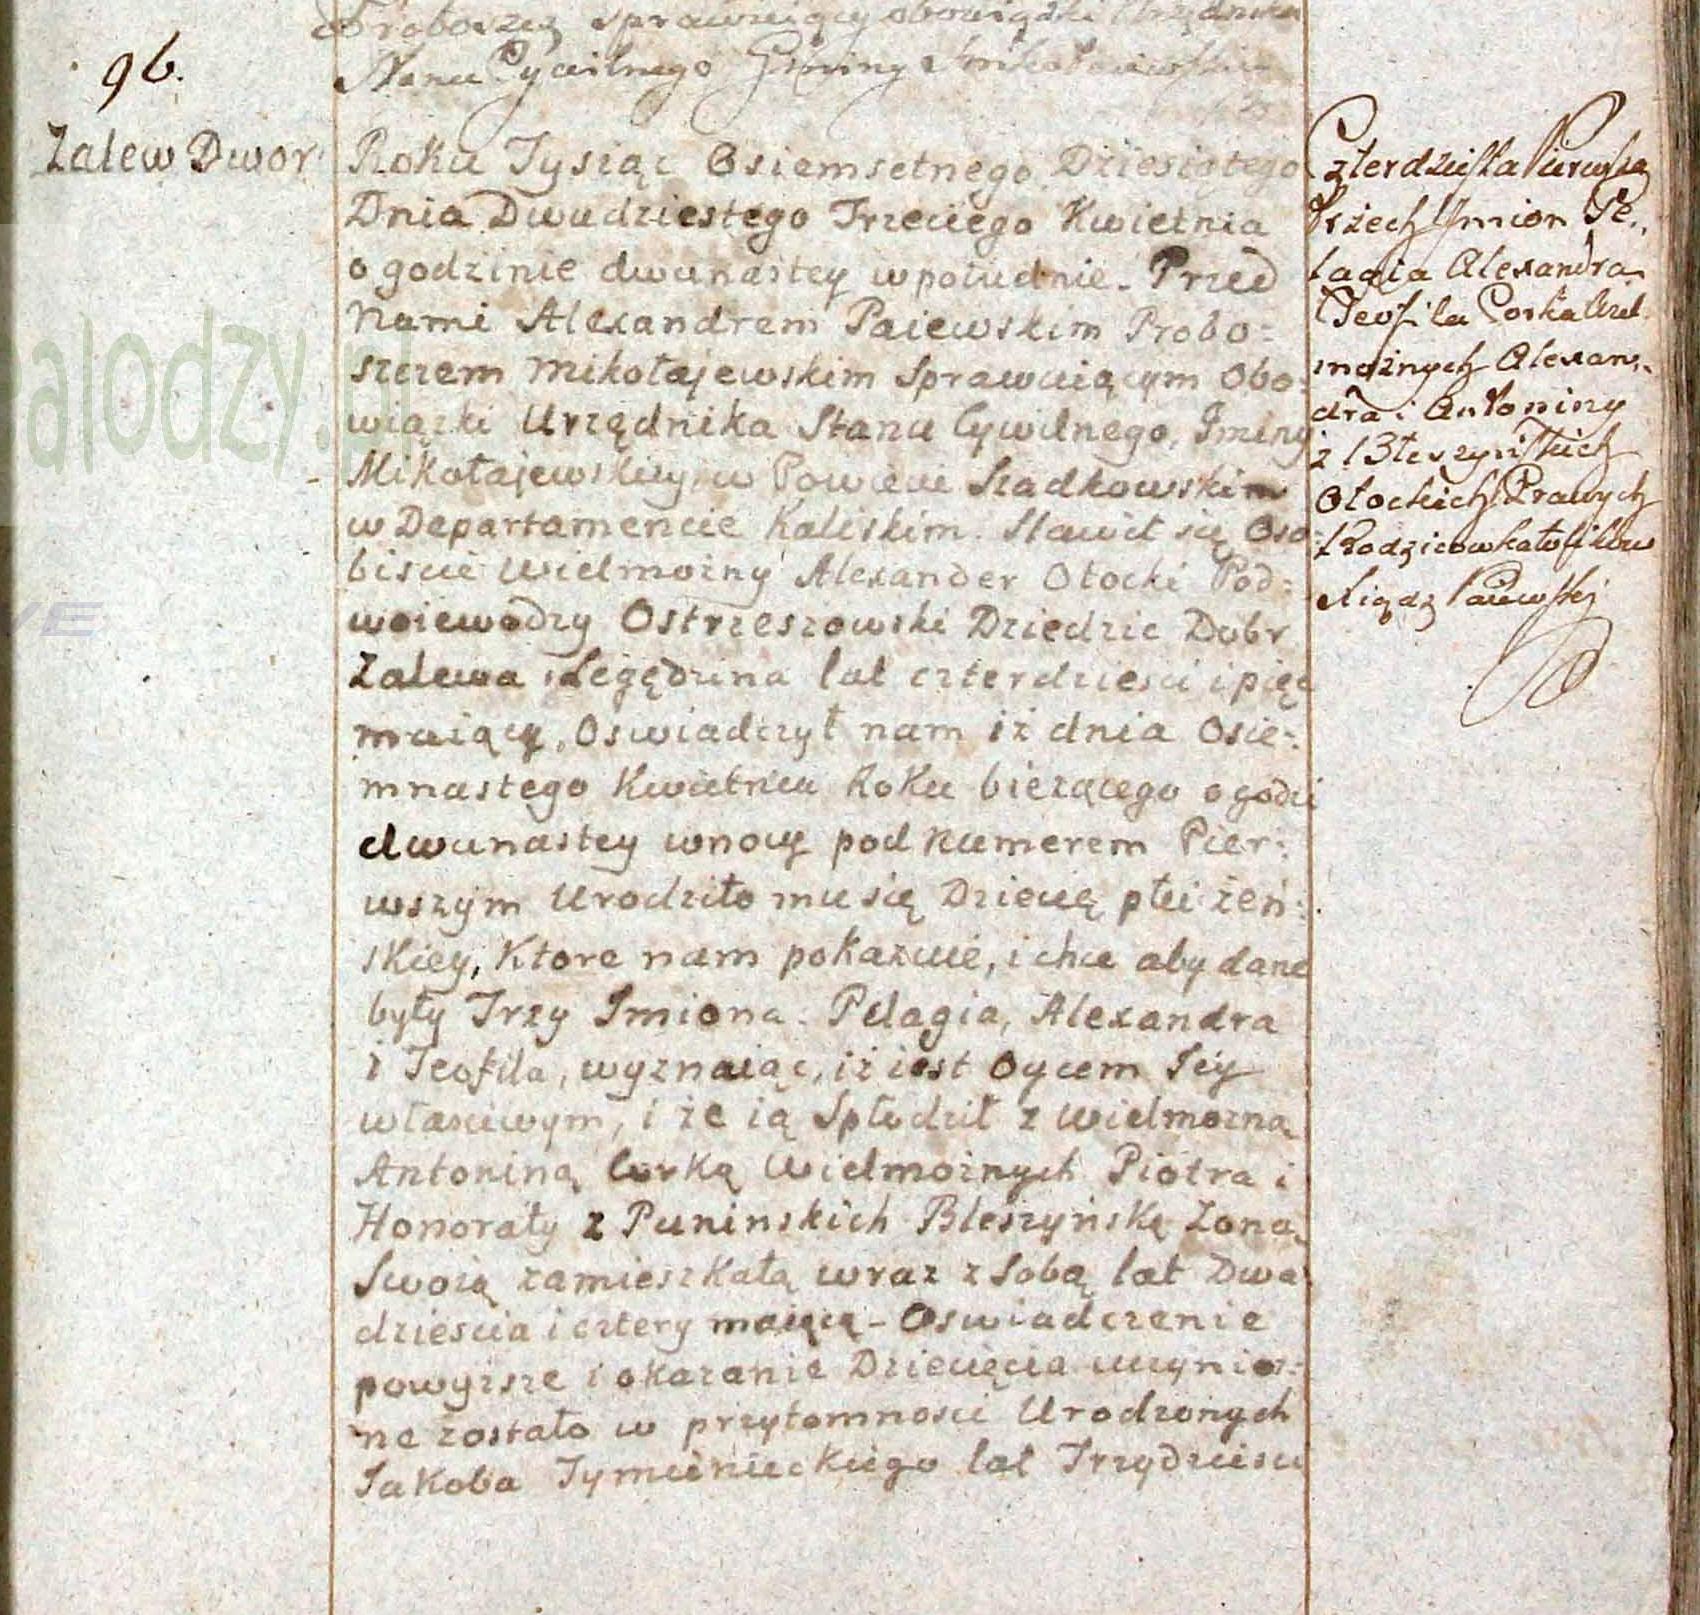 Proboszcz sprawuiący obowiązki Urzędnika
Stanu Cywilnego Gminy Mikołaiewskiey
96.
Zalew Dwor
Roku Tysiąc Osiemsetnego Dziesiątego
Dnia Dwudziestego Trzeciego Kwietnia
o godzinie dwunastey wpołudnie. Przed
Nami Alexandrem Paiewskim Probo=
szczem Mikołajewskim Sprawuiącym Obo=
wiązki Urzędnika Stanu Cywilnego, Gminy
Mikołajewskiey, w Powiecie Szadkowskim
w Departamencie Kaliskim. Stawił się Oso=
biście Wielmożny Alexander Otocki Pod=
woiewodzy Ostrzeszowski Dziedzic Dobr
Zalewa i Legędzina lat czterdziesci i pięc
maiący, Oswiadczył nam iż dnia Osie=
mnastego Kwietnia Roku bieżącego o godzi
dwunastey wnocy pod Numerem Pier=
wszym Urodziło mu się Dziecię płci żeń=
skiey, Ktore nam pokazuie, i chce aby dane
były Trzy Imiona. Pelagia, Alexandra
i Teofila, wyznaiąc, iż iest Oycem Iéy
własciwym, i że ią Spłodził z Wielmożną
Antoniną Corką Wielmożnych Piotra i
Honoraty z Puninskich Błeszyńską Zoną
Swoią zamieszkałą wraz z Sobą lat Dwa
dziescia i cztery maiącą - Oswiadczenie
powyższe i okazanie Dziecięcia uczynio=
ne zostało w przytomnosci Urodzonych
Jakoba Tymienieckiego lat Trzydziesci
Czterdziesta Pierwsza
Trzech Imion Pe=
lagia Alexandra
Teofila Corka Wiel
możnych Alexan=
dra i Antoniny
z Błeszyńskich
Otockich Prawych
Rodzicow katolikow
Xiądz Paiewski
palodzy.pl
VE